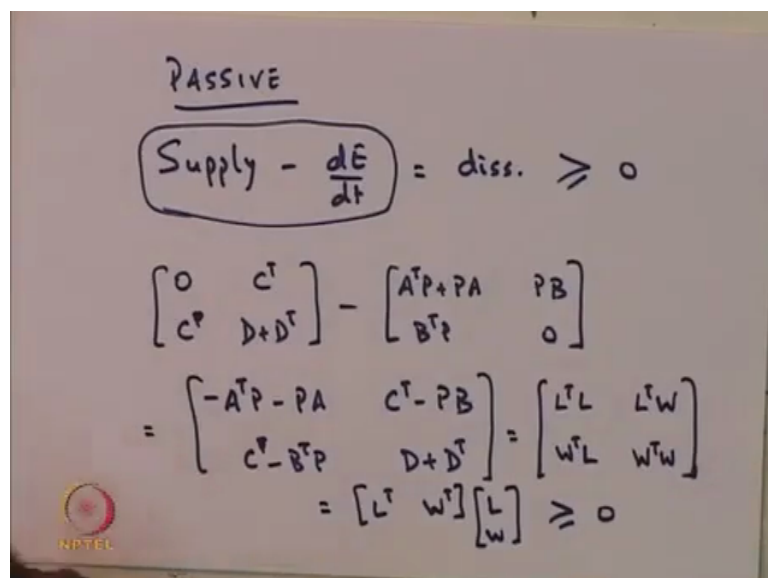 PASSIVE
Supply - dE/dt = diss. ≥ 0
[0 Cᵀ; Cᴾ D+Dᵀ] - [AᵀP+PA PB; BᵀP 0]
= [-AᵀP-PA Cᵀ-PB; Cᴾ-BᵀP D+Dᵀ] = [LᵀL LᵀW; WᵀL WᵀW]
= [Lᵀ Wᵀ][L; W] ≥ 0
NPTEL